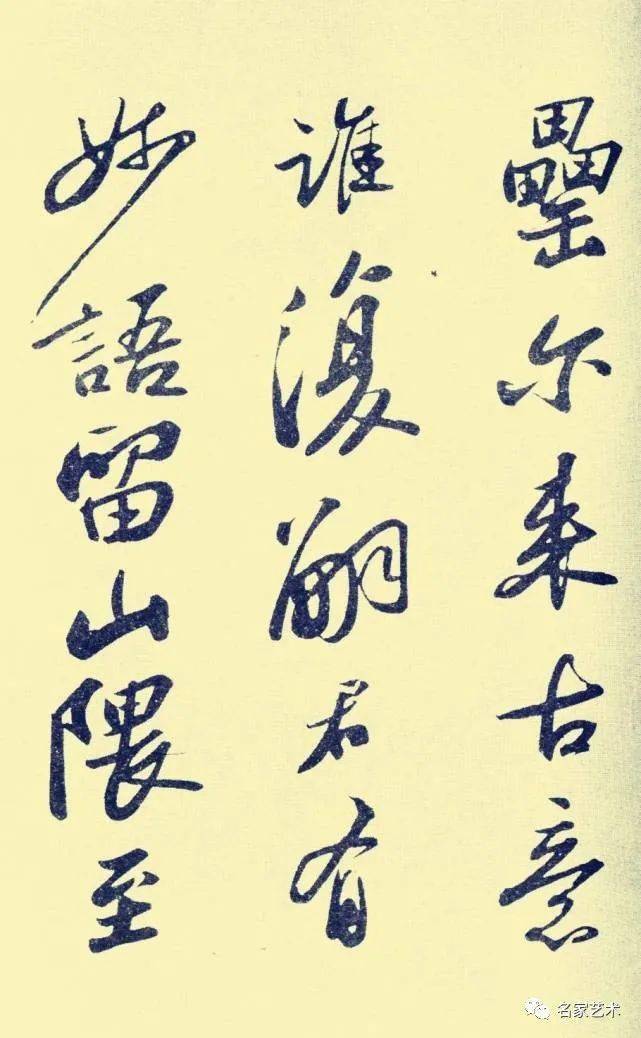 罍尔来古意
谁復嗣君有
妙語留山隈至
名家艺术